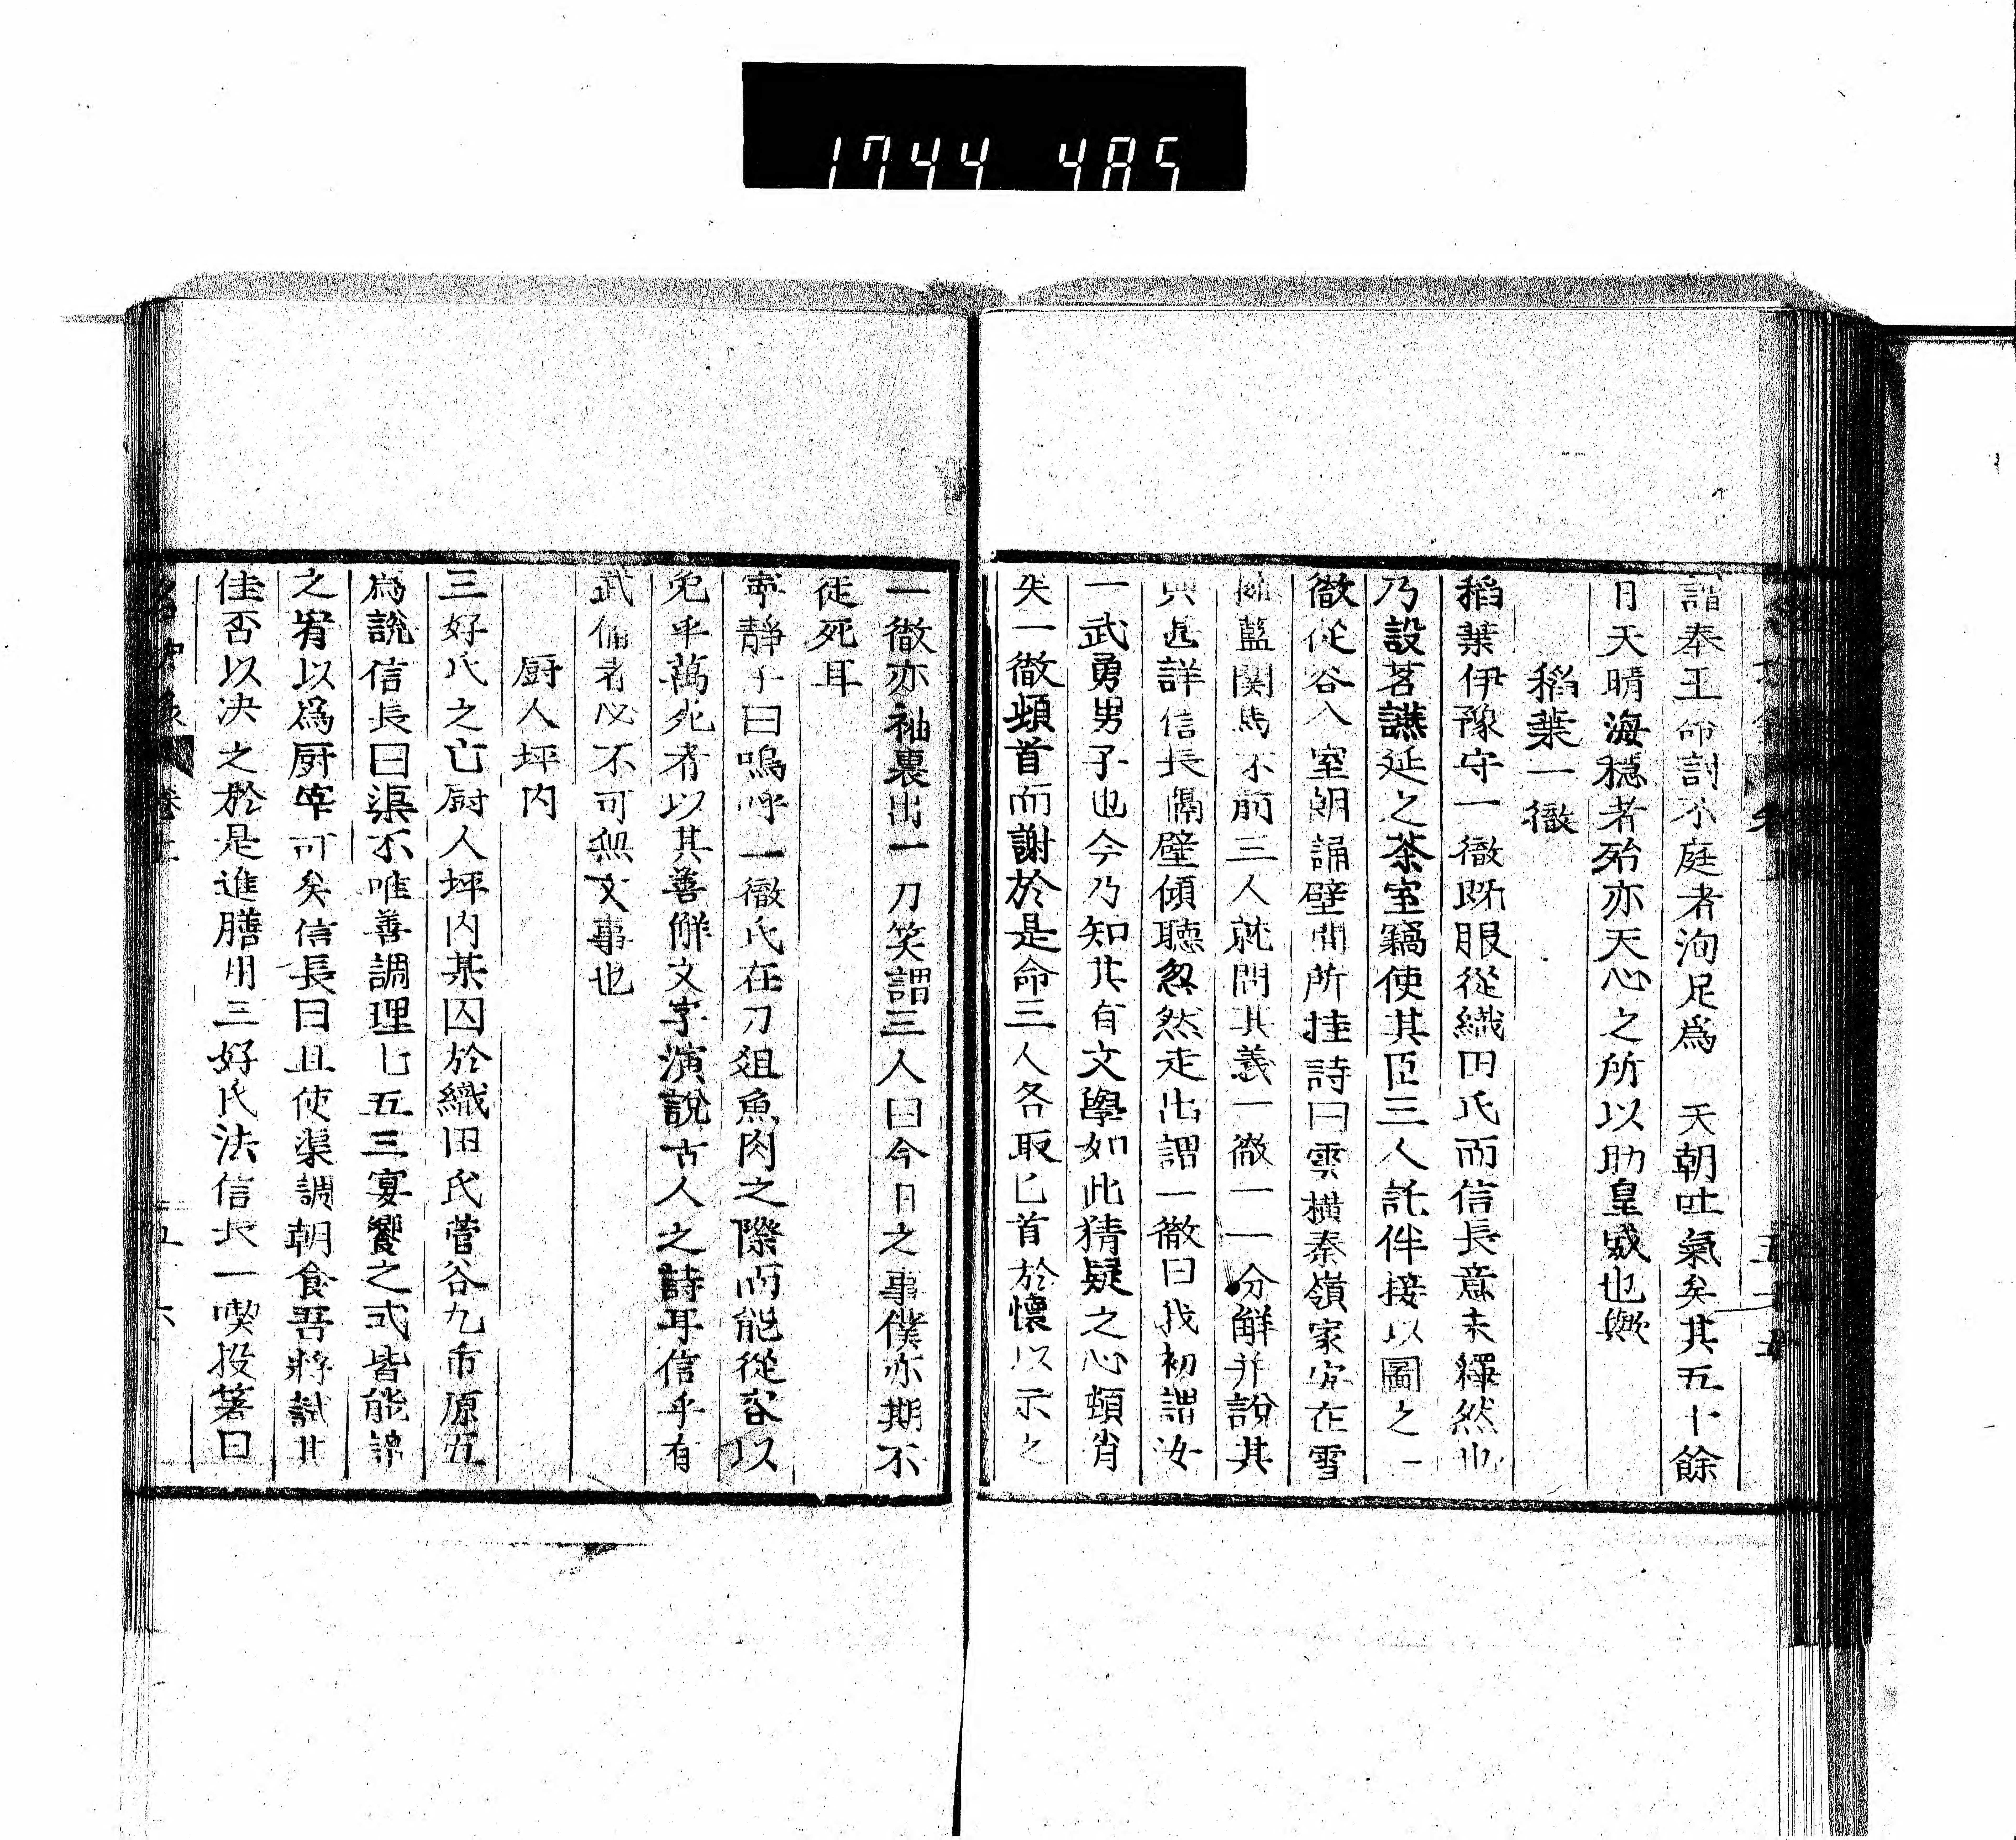 1744 485
詣奉王命討不庭者洵足爲 天朝吐氣矣其五十餘
日天晴海穩者殆亦天心之所以助皇威也歟
稻葉一徹
稻葉伊豫守一徹既服從織田氏而信長意未釋然也
乃設茗讌延之茶室竊使其臣三人託伴接以圖之一
徹從容入室朗誦壁間所挂詩曰雲橫秦嶺家安在雪
擁藍關馬不前三人就問其義一徹一一分解并說其
典甚詳信長隔壁傾聽忽然走出謂一徹曰我初謂汝
一武勇男子也今乃知其有文學如此猜疑之心頓消
失一徹頓首而謝於是命三人各取匕首於懷以示之
一徹亦袖裏出一刀笑謂三人曰今日之事僕亦期不
徒死耳
寧靜子曰嗚呼一徹氏在刀俎魚肉之際而能從容以
免乎萬死者以其善解文字演說古人之詩耳信乎有
武備者必不可無文事也
厨人坪内
三好氏之亡厨人坪内某囚於織田氏菅谷九右原五
爲說信長曰渠不唯善調理七五三宴饗之式皆能諳
之宥以爲厨宰可矣信長曰且使渠調朝食吾將試其
佳否以决之於是進膳用三好氏法信長一喫投箸曰